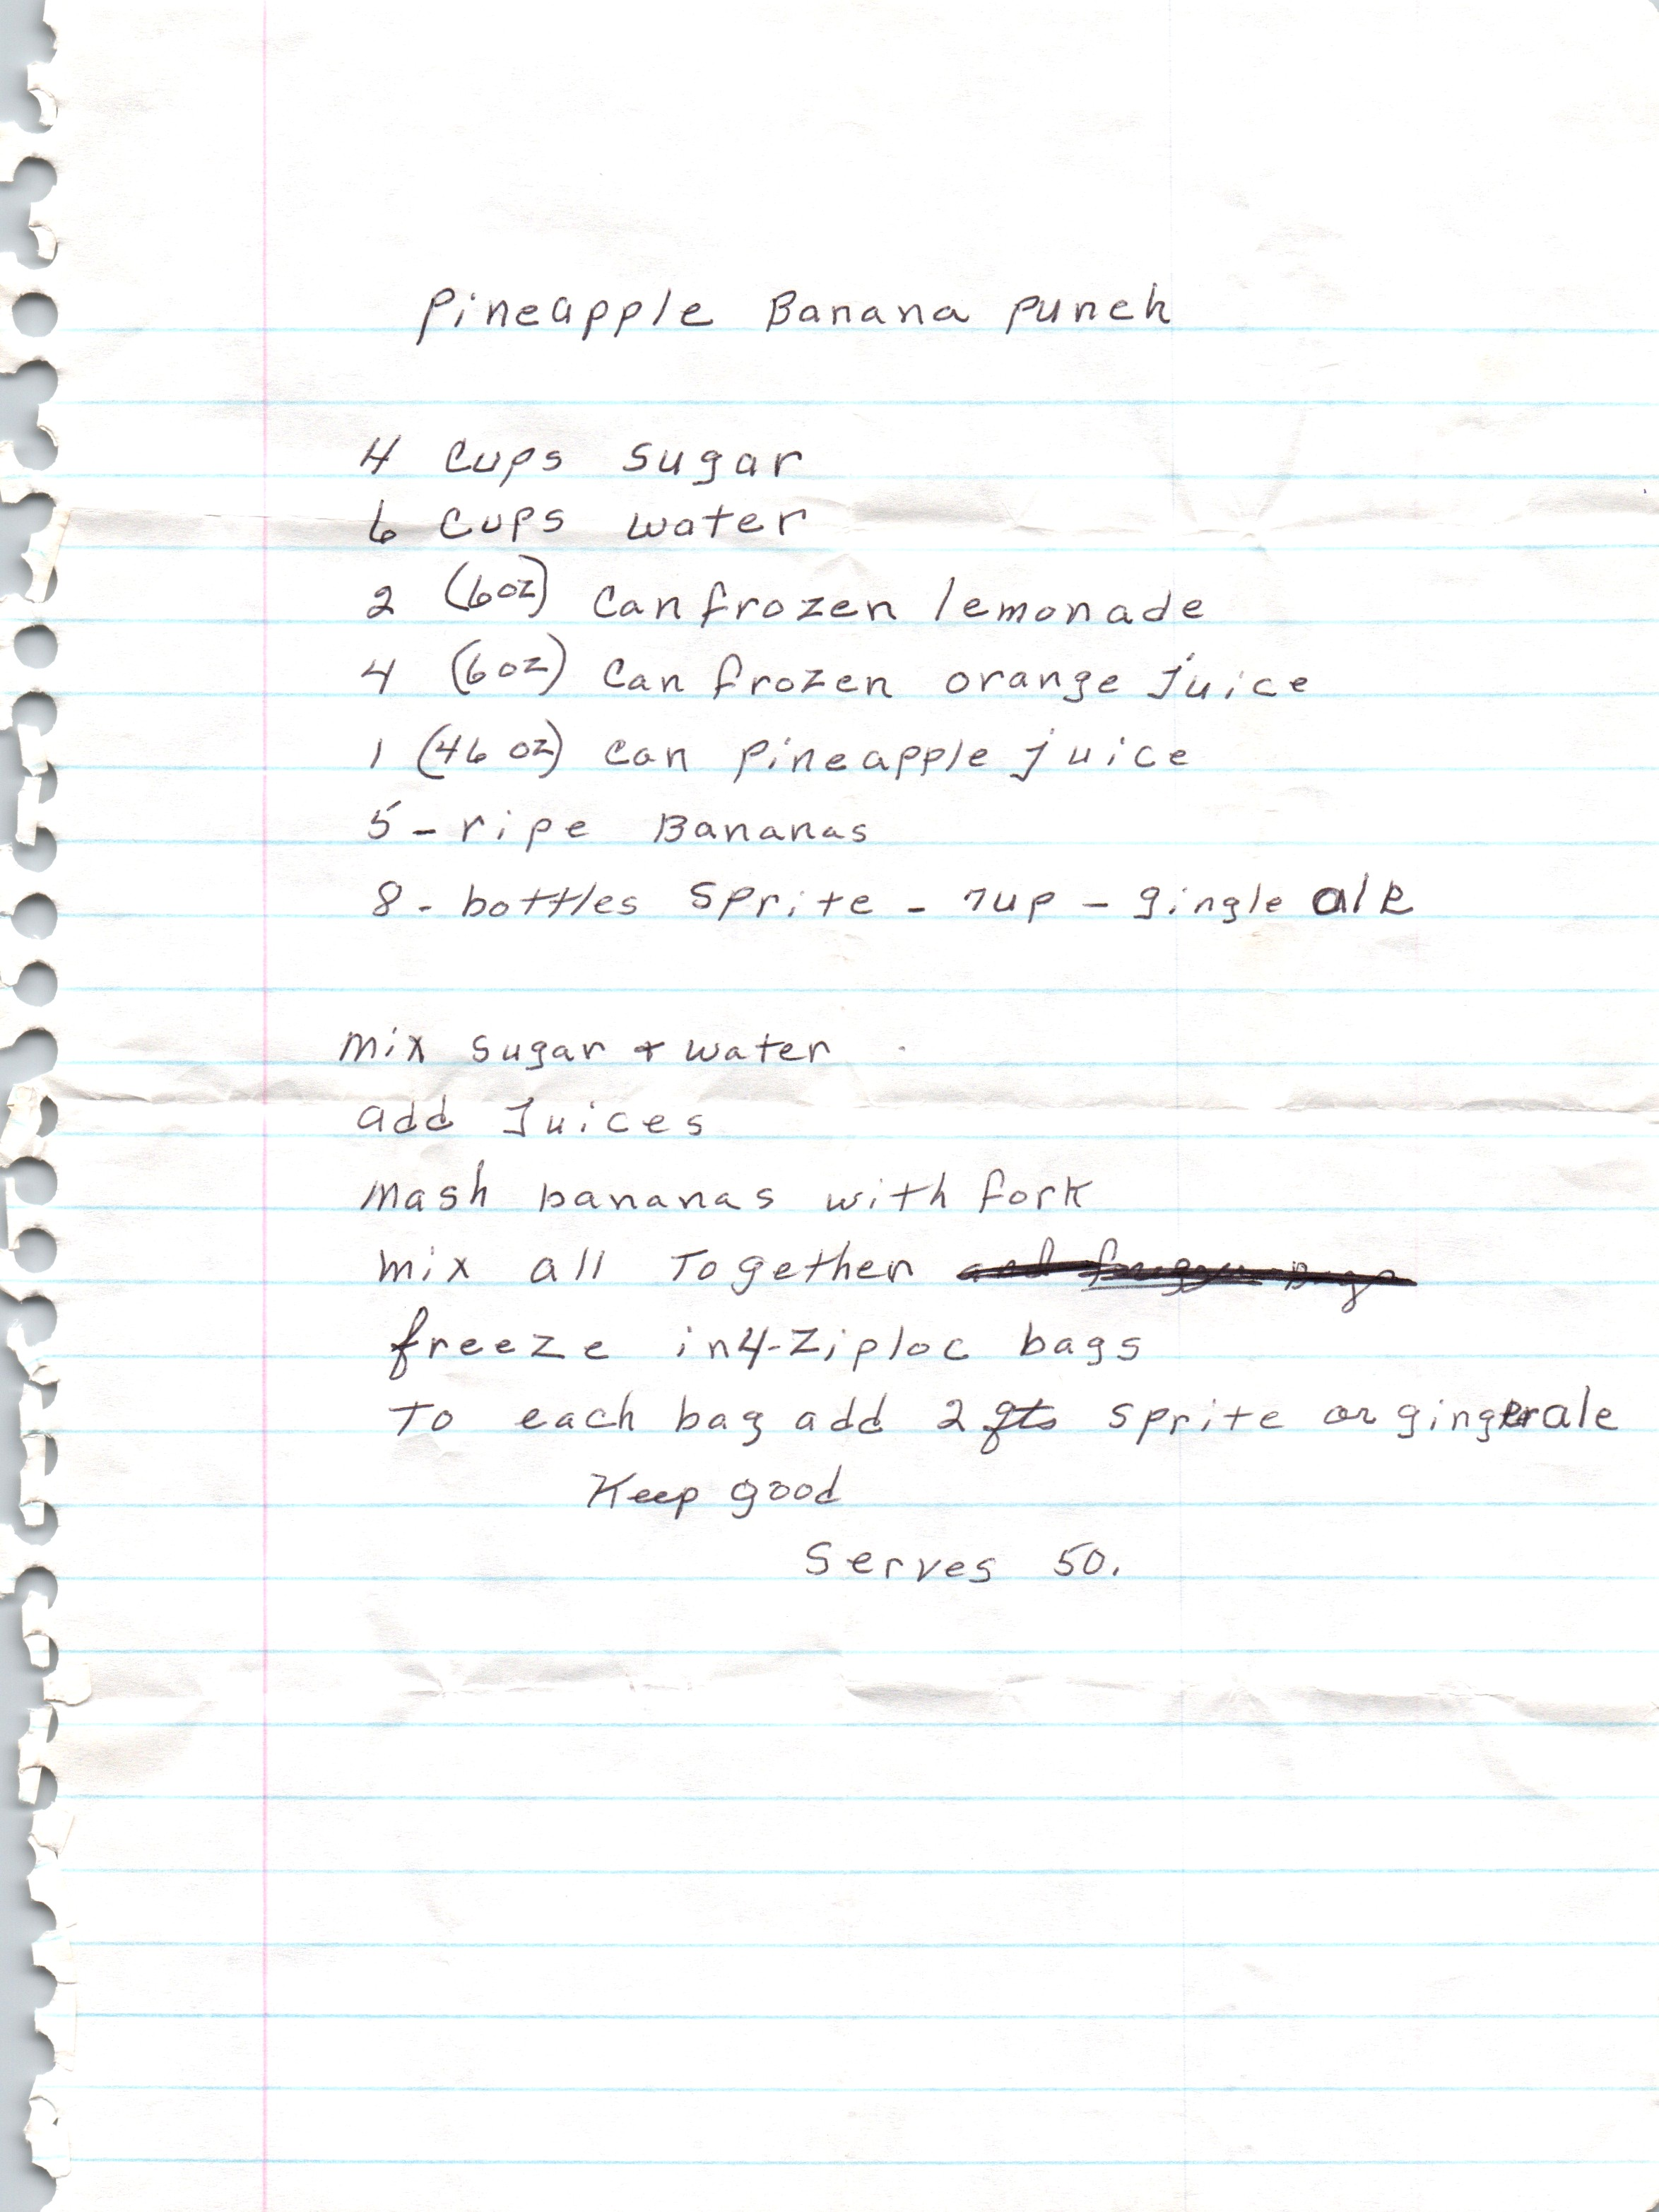 Pineapple Banana Punch
4 cups sugar
6 cups water
2 (6oz) can frozen lemonade
4 (6oz) can frozen orange juice
1 (46 oz) can pineapple juice
5 - ripe Bananas
8 - bottles Sprite - 7up - gingle ale
Mix sugar & water
add Juices
Mash bananas with fork
Mix all Together and
freeze in 4-Ziploc bags
To each bag add 2 qts sprite or gingerale
Keep good
Serves 50.